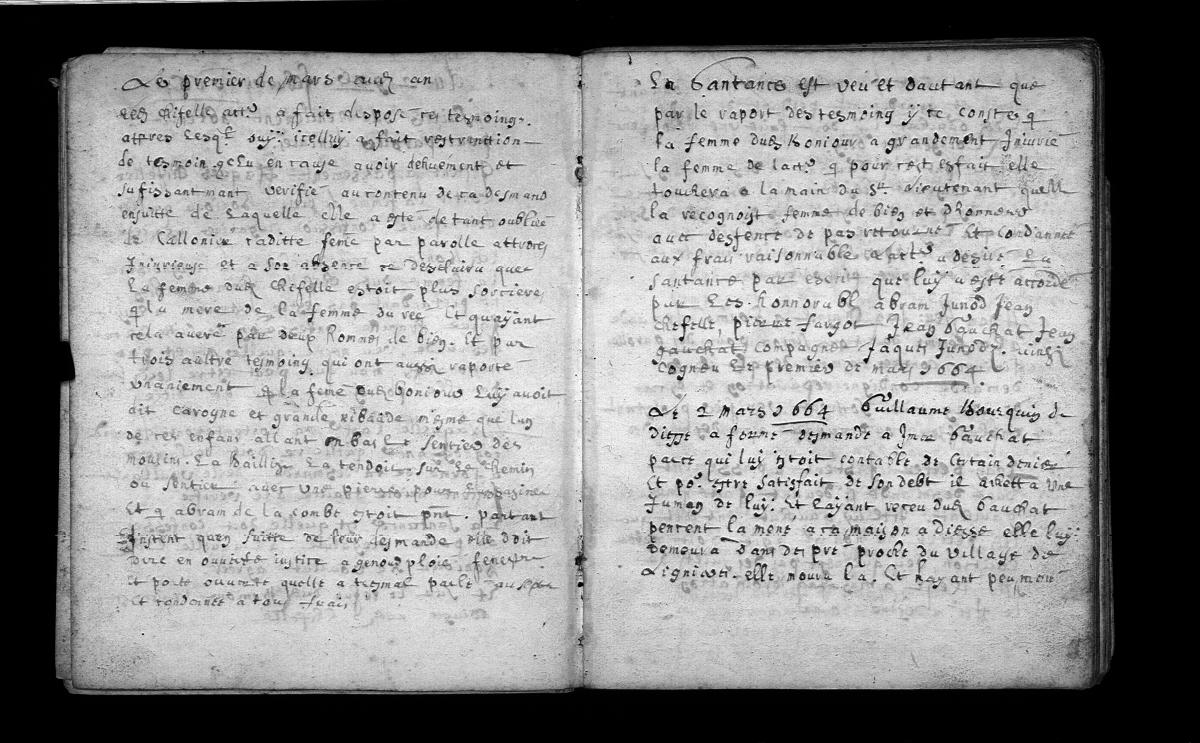 Le premier de mars aud an
led Chifelle actr a fait dispose ces tesmoings.
attpres Lesql ouy, icelluy a fait restrinttion
de tesmoin qelu en cause avoir dehuement et
sufissantmant verifie au contenu de ca desmand
ensuitte de Laquelle elle a este de tant oubliee
de Callonier caditte feme par parolle attroces
Iniurieuse et a son absence ce
La femme dud Chifelle estoit plus sorciere
q la mere de la femme du rée Et quayant
cela avere par deux hommes de bien. Et par
trois aultre tesmoing qui ont aussy raporté
unaniement q la feme dud bonioud Luy avoit
dit carogne et grande ribaude mesme que lun
de ces enfans allant en bas Le sentier des
moulins. La Baillis La tendoit sur Le chemin
ou sentier avec une pierre pour
Et q abram de la combe estoit pnt. partant
Instent quen suitte de leur desmande elle doit
dire en ouverte iustice a genoux ploié fenestre
Et porte ouverte quelle a tresmal parle
Et condannee a tous frais
La Santance est veu et dautant que
par le raport des tesmoing y ce conste q
la femme dud Boniour a grandement Iniurié
la femme de lactr q pour cest esfait elle
touchera a la main du Sr. Lieutenant quell
la recognoist femme de bien et dhonneur
avec desfence de pas retourné Et condannée
aux frais raisonnable Lactr a desire La
santance par escrit que luy a esté accorde
par Les. honnorabl abram Junod Jean
Chefelle, pierre fargot Jean Gauchat Jean
gauchat compagnie Jaques Junod. ainsy
cogneu Le premier de mars 1664
Le 2 Mars 1664 Guillaume Bourguin de
diesse a formé desmande a Imer Gauchat
parce qui luy estoit contable de certain denier
Et por estre satisfait de son debt il achetta une
Jumen de luy. Et Layant receu dud Gauchat
pencent la mené a ca maison a Diesse elle luy
demeura dans des pré proche du village de
Lignieres. elle moura la. Et nayant peu